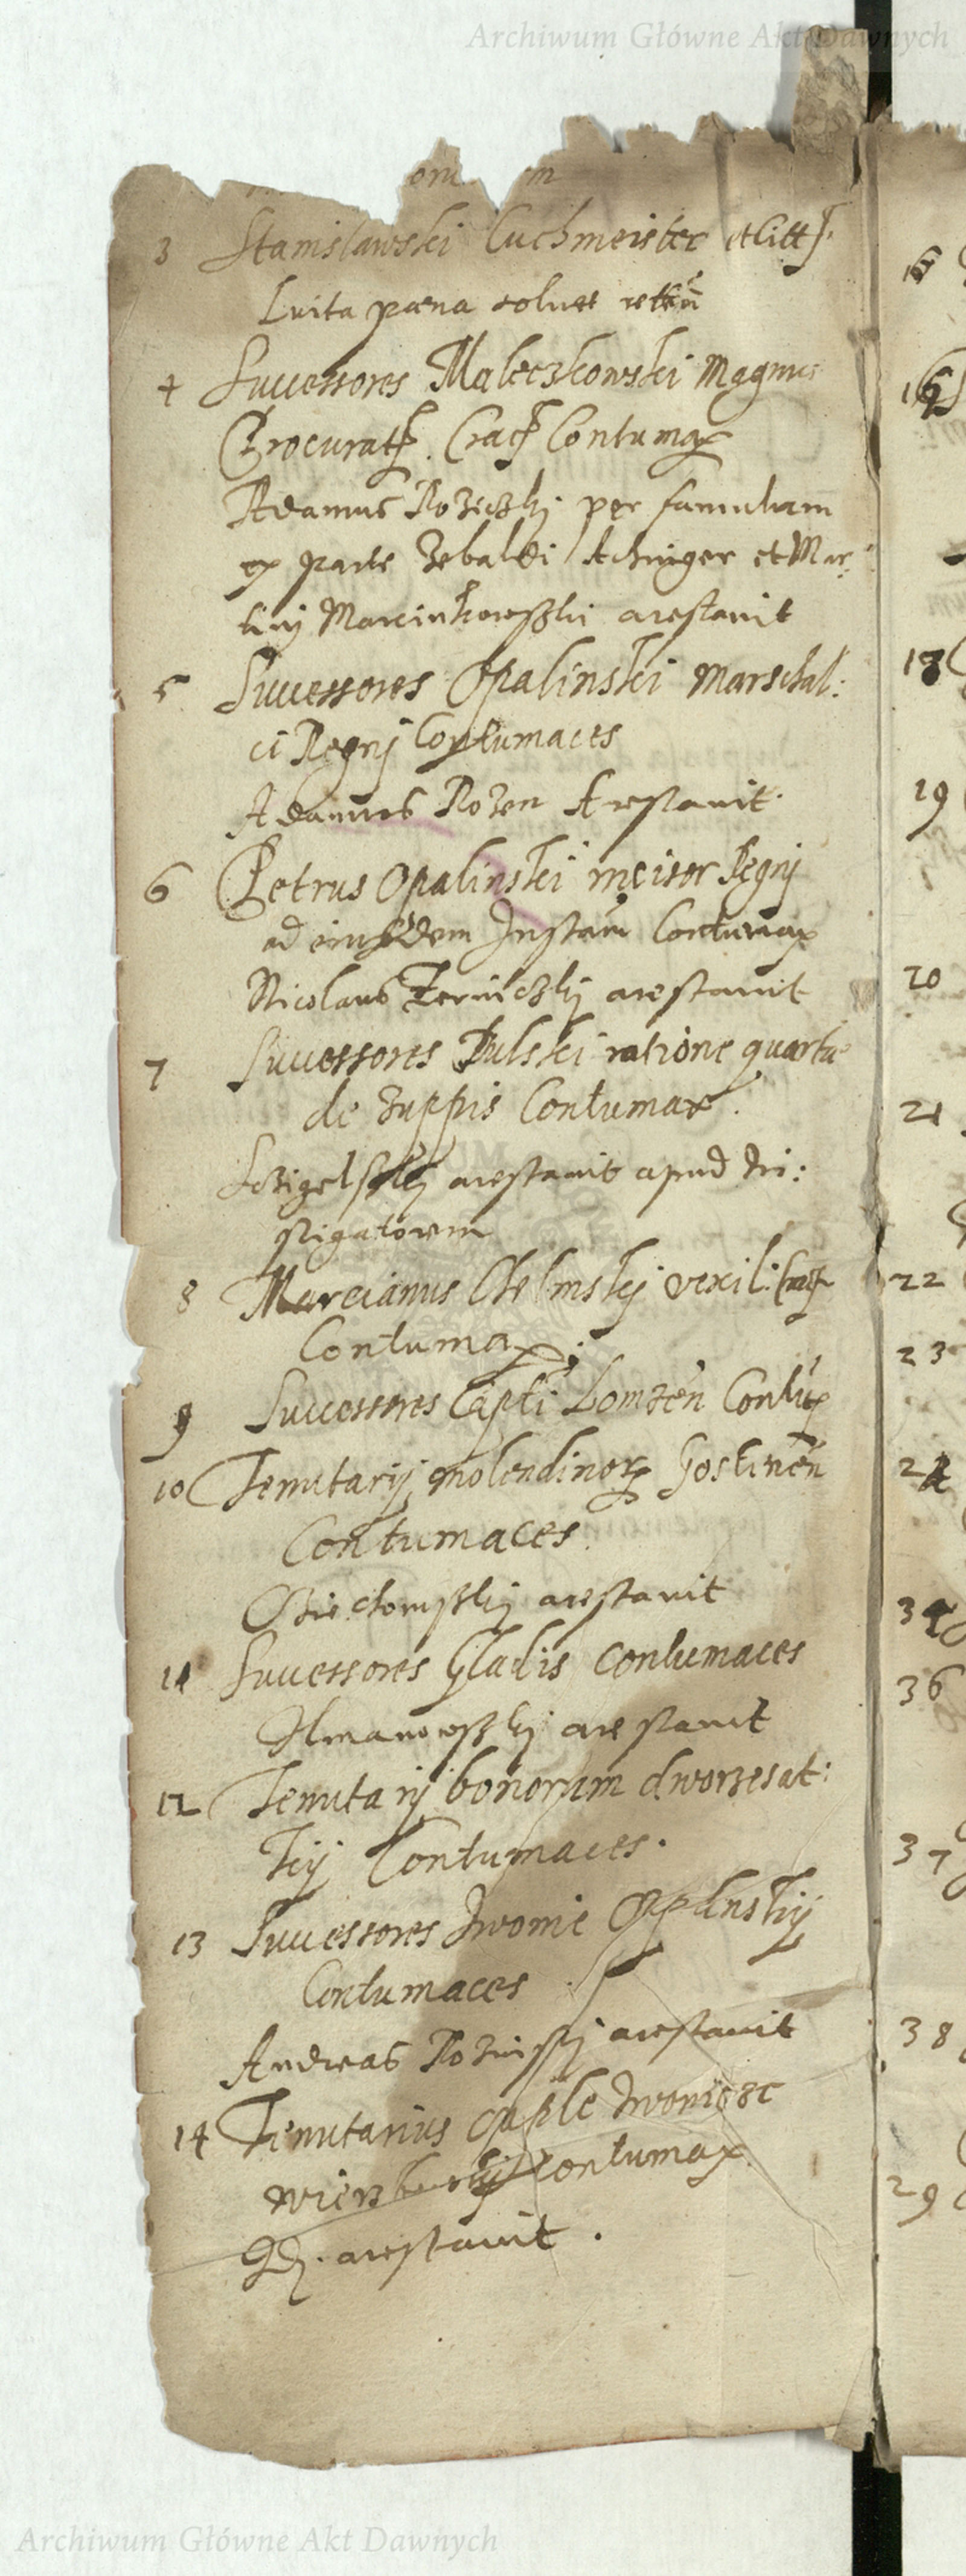 Archiwum Główne Akt Dawnych
3 Stanislawski Cuchmeister et
Luita pæna solvet
4 Successores Maleczkowski Magnus
Procurat. Crac. Contumax
Adamus Roziczkj per famulum
ex parte Zebaldi Achinger et Mar:
tinj Marcinkowskj arestavit
5 Successores Opalinski Marschal:
ci Regnj Contumaces
Adamus Rozen Arestavit.
6 Petrus Opalinski incisor Regnj
ad eiusdem Instam Contumax
Nicolaus arestavit
7 Successores Pulski ratione quartæ
de zuppis Contumax.
arestavit apud In:
stigatorem
8 Marcianus Chelmskj vexil: Crac
Contumax;
9 Successores Capti Lomzen Contux
10 Tenutarij molendinor Gostinen
Contumaces.
arestavit
11 Successores Gladis contumaces
arestavit
12 Tenutarij bonorum dworzesat:
kij Contumaces.
13 Successores Iwonie
Contumaces
Andreas arestavit
14 Tenutarius Iwonicze
contumax
Id. arestavit.
16
18
19
20
21
22
23
24
36
37
38
29
Archiwum Główne Akt Dawnych